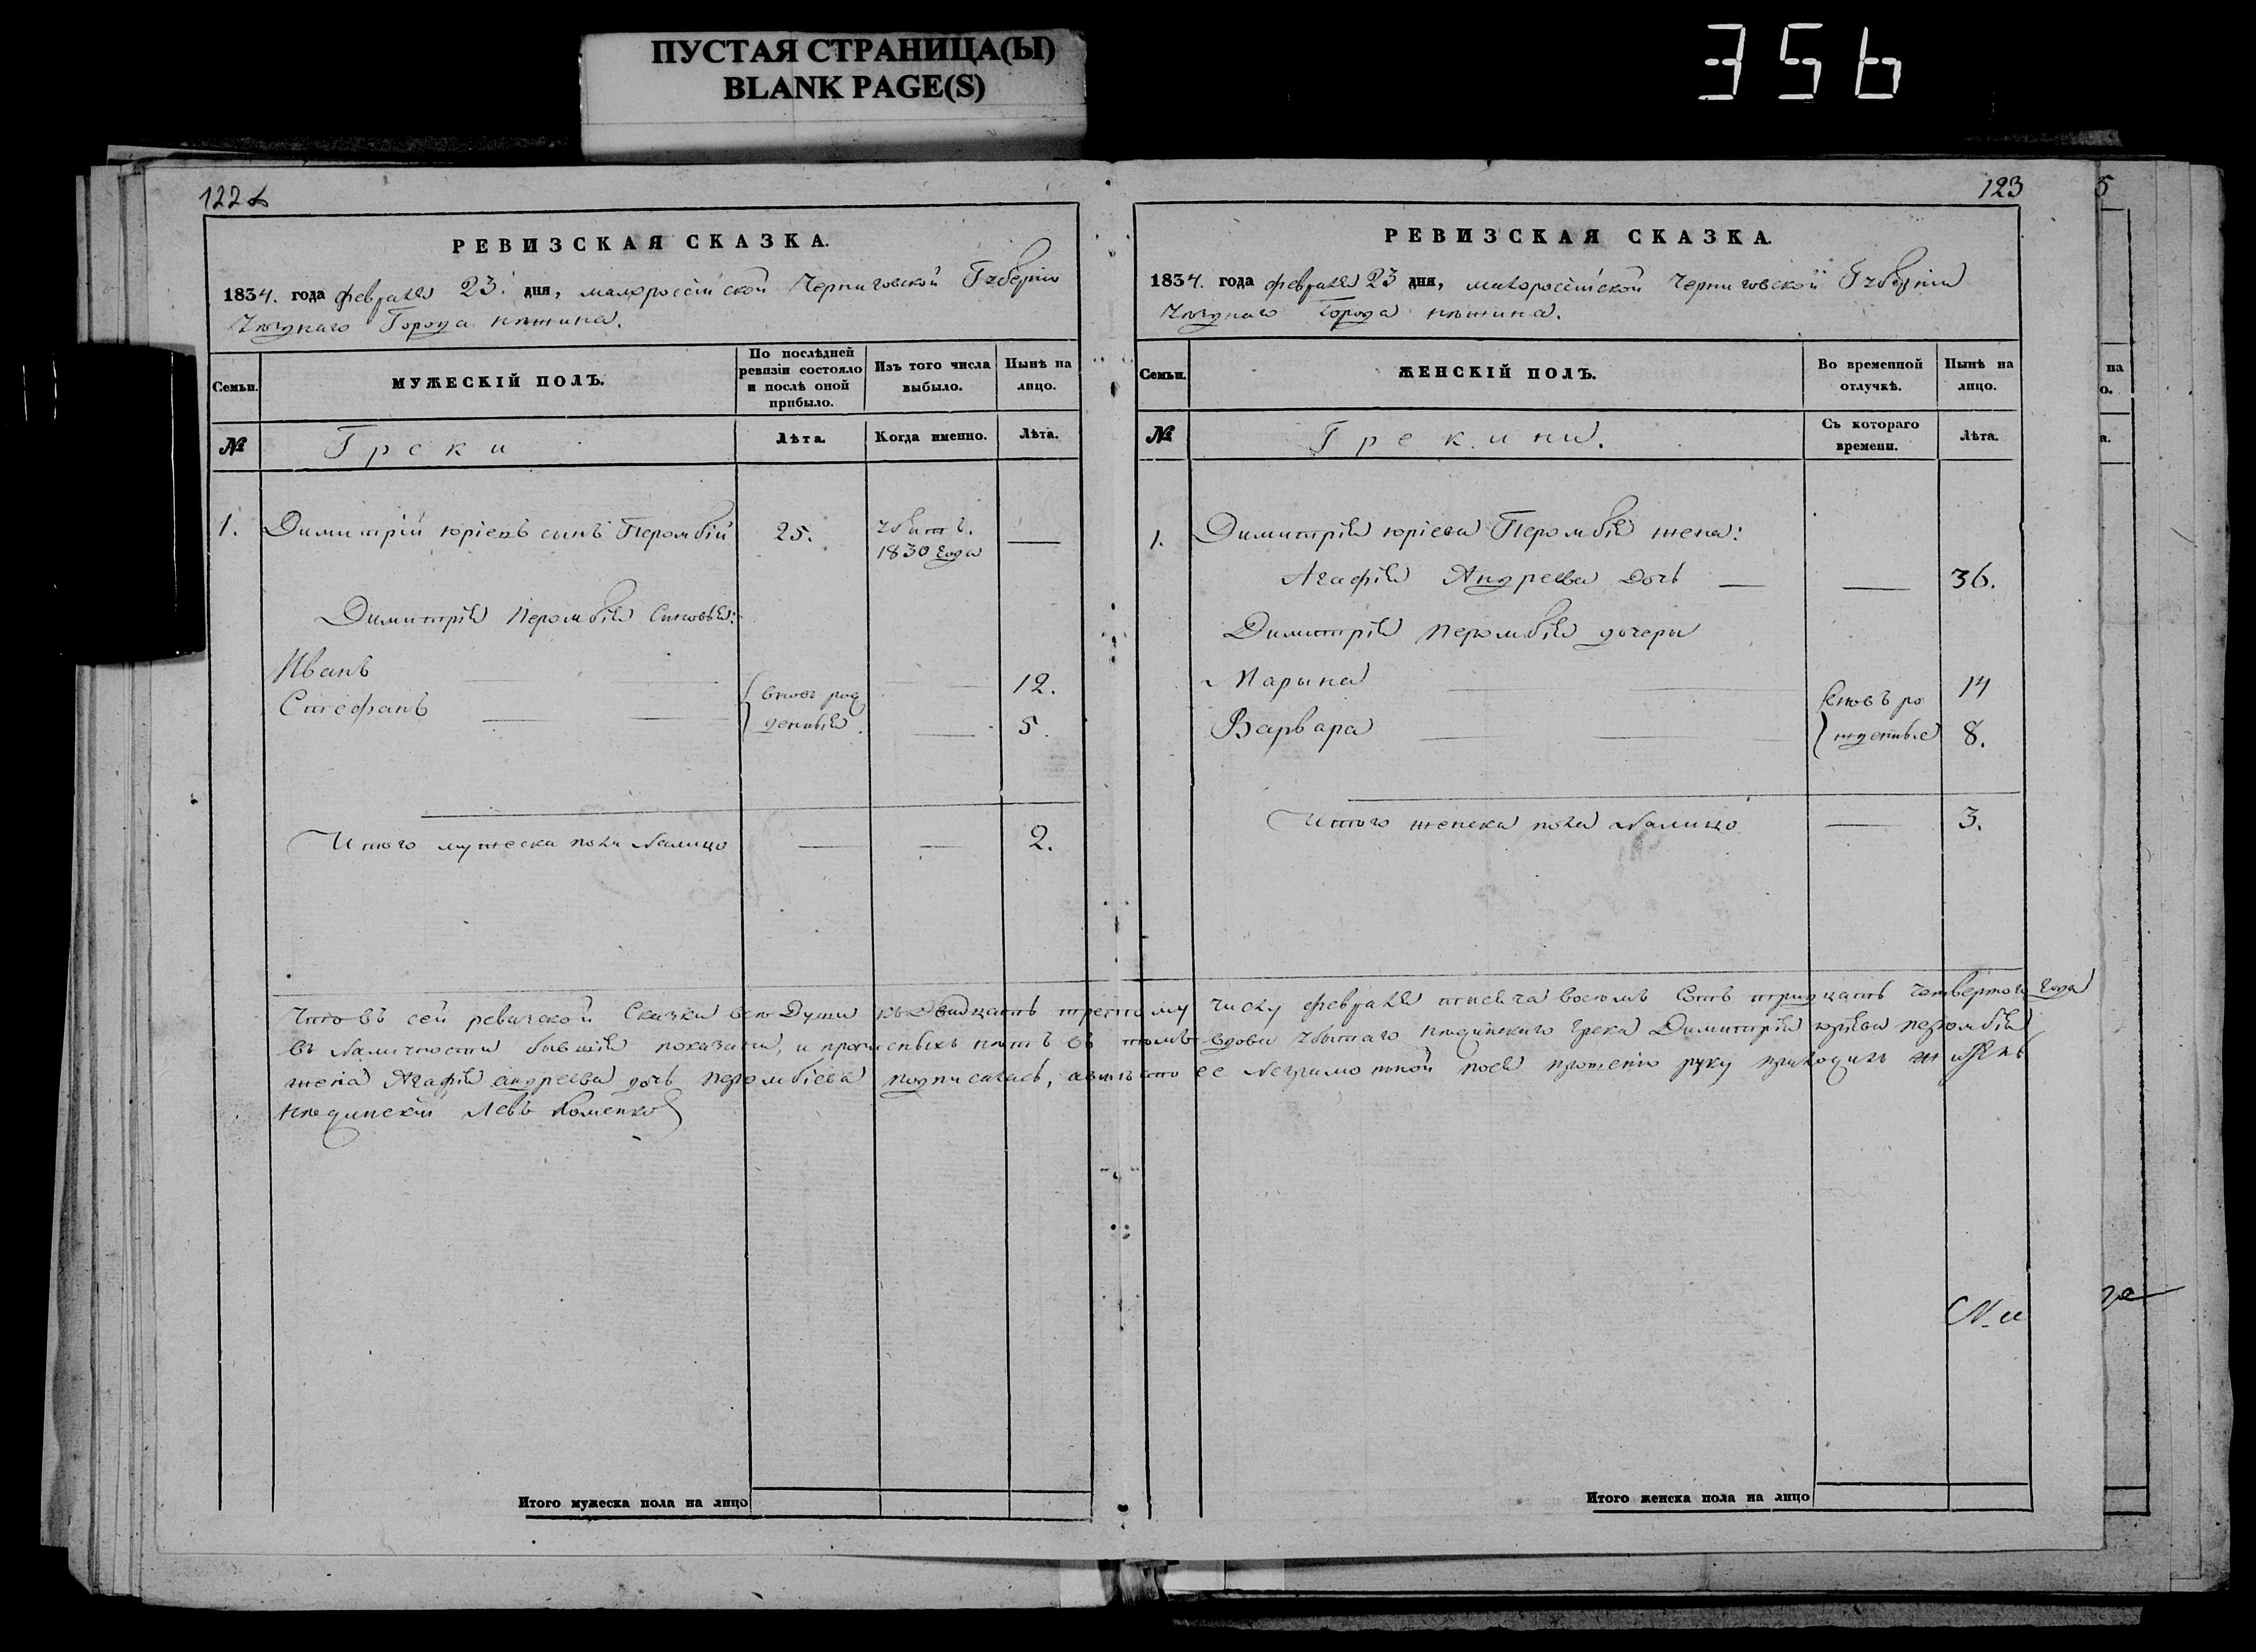 ПУСТАЯ СТРАНИЦА(Ы)
BLANK PAGE(S)
356
122
РЕВИЗСКАЯ СКАЗКА.
1834. года февраля 23. дня, малороссійской Черниговской Губерніи
уезднаго Города нѣжина.
Семьи.
МУЖЕСКІЙ ПОЛЪ.
По послѣдней ревизіи состояло и послѣ оной прибыло.
Изъ того числа выбыло.
Нынѣ на лицо.
№
Греки
Лѣта.
Когда именно.
Лѣта.
1. Димитрій юріевъ сынъ Перомбій 25. убитъ. 1830 года —
Димитрія Перомбія Сыновья:
Иванъ — — 12.
Стефанъ — — 5.
вновь рожденныя.
Итого мужеска пола налицо — — 2.
123
РЕВИЗСКАЯ СКАЗКА.
1834. года февраля 23 дня, малороссійской Черниговской Губерніи
уезднаго Города нѣжина.
Семьи.
ЖЕНСКІЙ ПОЛЪ.
Во временной отлучкѣ.
Нынѣ на лицо.
№
Грекини.
Съ котораго времени.
Лѣта.
1. Димитрія юріева Перомбія жена:
Агафія Андреева Дочь — — 36.
Димитрія Перомбія дочери
Марына — — 14
Варвара — — 8.
вновь рожденные
Итого женска пола налицо — 3.
Что въ сей ревизской Сказки все Души къ двадцать третьему числу февраля тисеча восемъ Сотъ тридцать четвертого года
въ наличности бывшія показаны, и прописныхъ нѣтъ въ томъ вдова убытаго нѣжинскаго грека Димитрія юріева перомбія
жена Агафія андреева дочь перомбіева подписалась, авместо ее неграмотной поея прошенію руку приложилъ житель
нѣжинскій Левъ
Итого мужеска пола на лицо
Итого женска пола на лицо